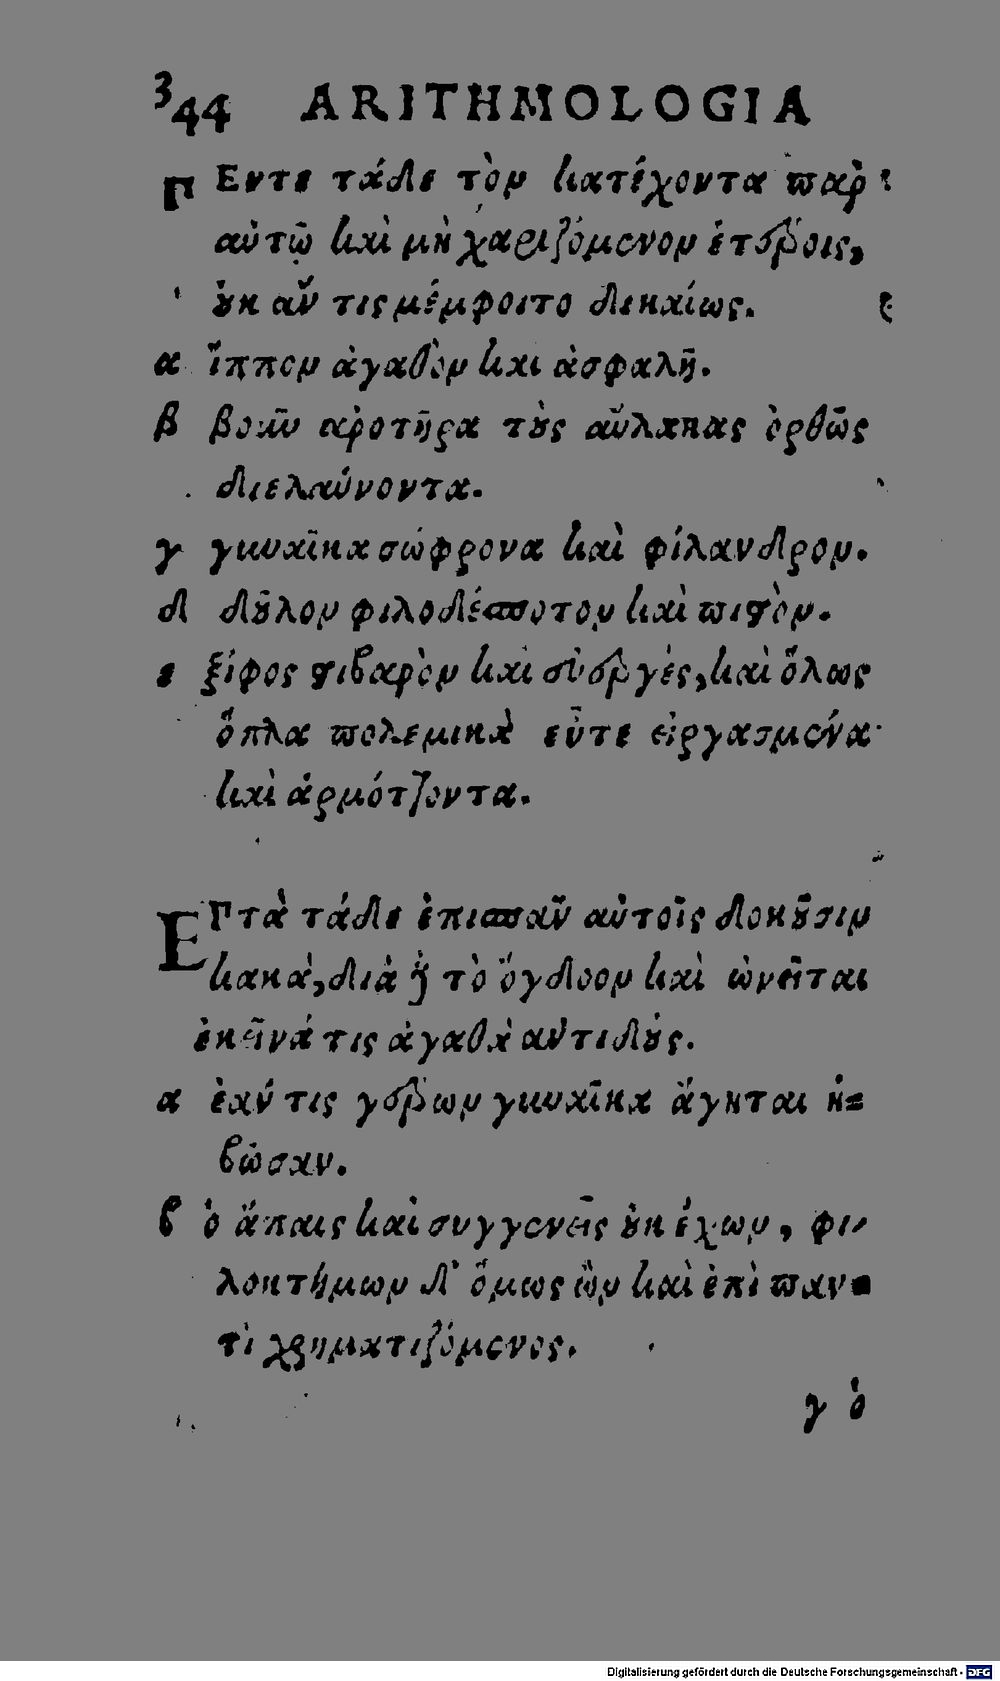 344 ARITHMOLOGIA
ΠΕντε τάδε τὸν κατέχοντα παρ'
αὑτῷ καὶ μὴ χαριζόμενον ἑτέροις,
οὐκ ἄν τις μέμφοιτο δικαίως.
α ἵππον ἀγαθὸν καὶ ἀσφαλῆ.
β βοῦν ἀροτῆρα τοὺς αὔλακας ὀρθῶς
διελαύνοντα.
γ γυναῖκα σώφρονα καὶ φίλανδρον.
δ δοῦλον φιλοδέσποτον καὶ πιστὸν.
ε ξίφος στιβαρὸν καὶ εὐεργές, καὶ ὅλως
ὅπλα πολεμικὰ εὖτε εἰργασμένα
καὶ ἁρμόττοντα.
ΕΠτὰ τάδε ἐπισπᾶν αὐτοῖς δοκοῦσιν
κακὰ, διὰ ἢ τὸ ὄγδοον καὶ ὠνεῖται
ἐκεῖνά τις ἀγαθὰ ἀντιδούς.
α ἐάν τις γέρων γυναῖκα ἄγηται ἡ-
βῶσαν.
β ὁ ἄπαις καὶ συγγενεῖς οὐκ ἔχων, φι-
λοκτήμων δ' ὅμως ὢν καὶ ἐπὶ παν-
τὶ χρηματιζόμενος.
γ ὁ
Digitalisierung gefördert durch die Deutsche Forschungsgemeinschaft - DFG